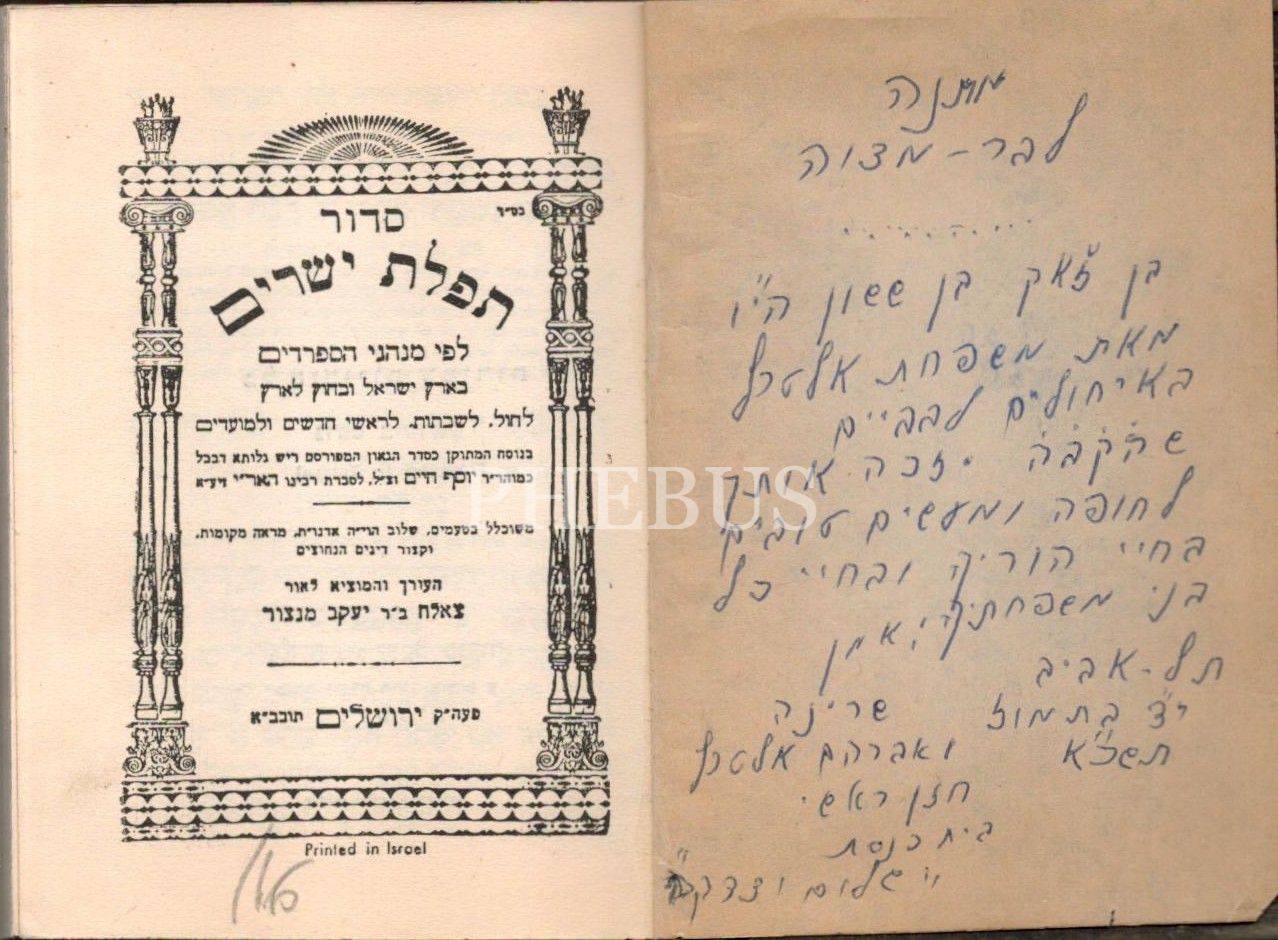 בס״ד
סדור
תפלת ישרים
לפי מנהגי הספרדים
בארץ ישראל ובחוץ לארץ
לחול, לשבתות, לראשי חדשים ולמועדים
בנוסח המתוקן כסדר הגאון המפורסם ריש גלותא דבבל
כמוהר״ר יוסף חיים זצ״ל, לסברת רבינו האר״י זיע״א
משוכלל בטעמים, שלוב הוי״ה אדנו״ת, מראה מקומות,
וקצור דינים הנחוצים
העורך והמוציא לאור
צאלח ב״ר יעקב מנצור
פעה״ק ירושלים תובב״א
Printed in Israel
PHEBUS
מתנה
לבר-מצוה
בן ז'אק בן ששון הי״ו
מאת משפחת
באיחולים לבביים
שהקב״ה יזכה אותך
לחופה ומעשים טובים
בחיי הוריך ובחיי כל
בני משפחתך, אמן
תל-אביב
בתמוז שרינה
תשכ״א ואברהם
חזן ראשי
בית כנסת